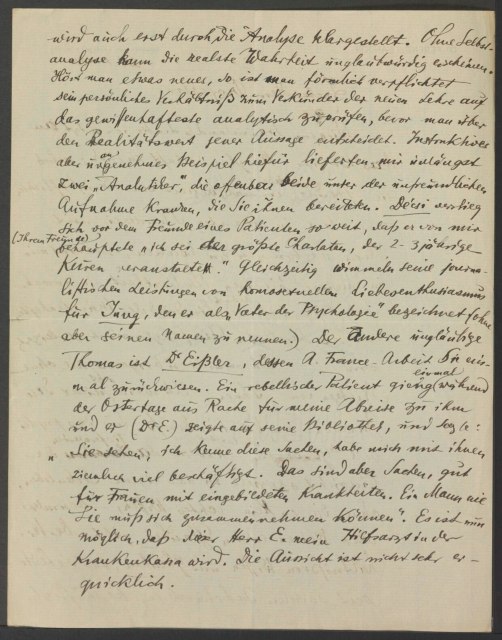 wird auch erst durch die Analyse klargestellt. Ohne Selbst-
analyse kann die realste Wahrheit unglaubwürdig erscheinen.
Hört man etwas neues, so ist man förmlich verpflichtet
sein persönliches Verhältniß zum Verkünder der neuen Lehre auf
das gewissenhafteste analytisch zu prüfen, bevor man über
den Realitätswert jener Aussage entscheidet. Instruktives
aber unangenehmes Beispiel hiefür lieferten mir unlängst
zwei „Analytiker", die offenbar beide unter der unfreundlichen
Aufnahme kranken, die Sie ihnen bereiteten. Décsi verstieg
sich vor dem Freunde eines Patienten so weit, daß er von mir
(Ihrem Freunde)
behauptete „ich sei der größte Charlatan, der 2-3 jährige
Kuren veranstaltet." Gleichzeitig wimmeln seine journa-
listischen Leistungen von homosexuellem Liebesenthusiasmus
für Jung, den er als „Vater der Psychologie" bezeichnet (ohne
aber seinen Namen zu nennen.) Der andere ungläubige
Thomas ist Dr Eißler, dessen A. France-Arbeit Sie ein-
mal zurückwiesen. Ein rebellischer Patient gieng einmal (während
der Ostertage aus Rache für meine Abreise zu ihm
und er (Dr E) zeigte auf seine Bibliothek, und sagte:
„Sie sehen, ich kenne diese Sachen, habe mich mit ihnen
ziemlich viel beschäftigt. Das sind aber Sachen, gut
für Frauen mit eingebildeten Krankheiten. Ein Mann wie
Sie muß sich zusammennehmen können". Es ist nun
möglich, daß dieser Herr E. mein Hilfsarzt in der
Krankenkassa wird. Die Aussicht ist nicht sehr er-
quicklich.